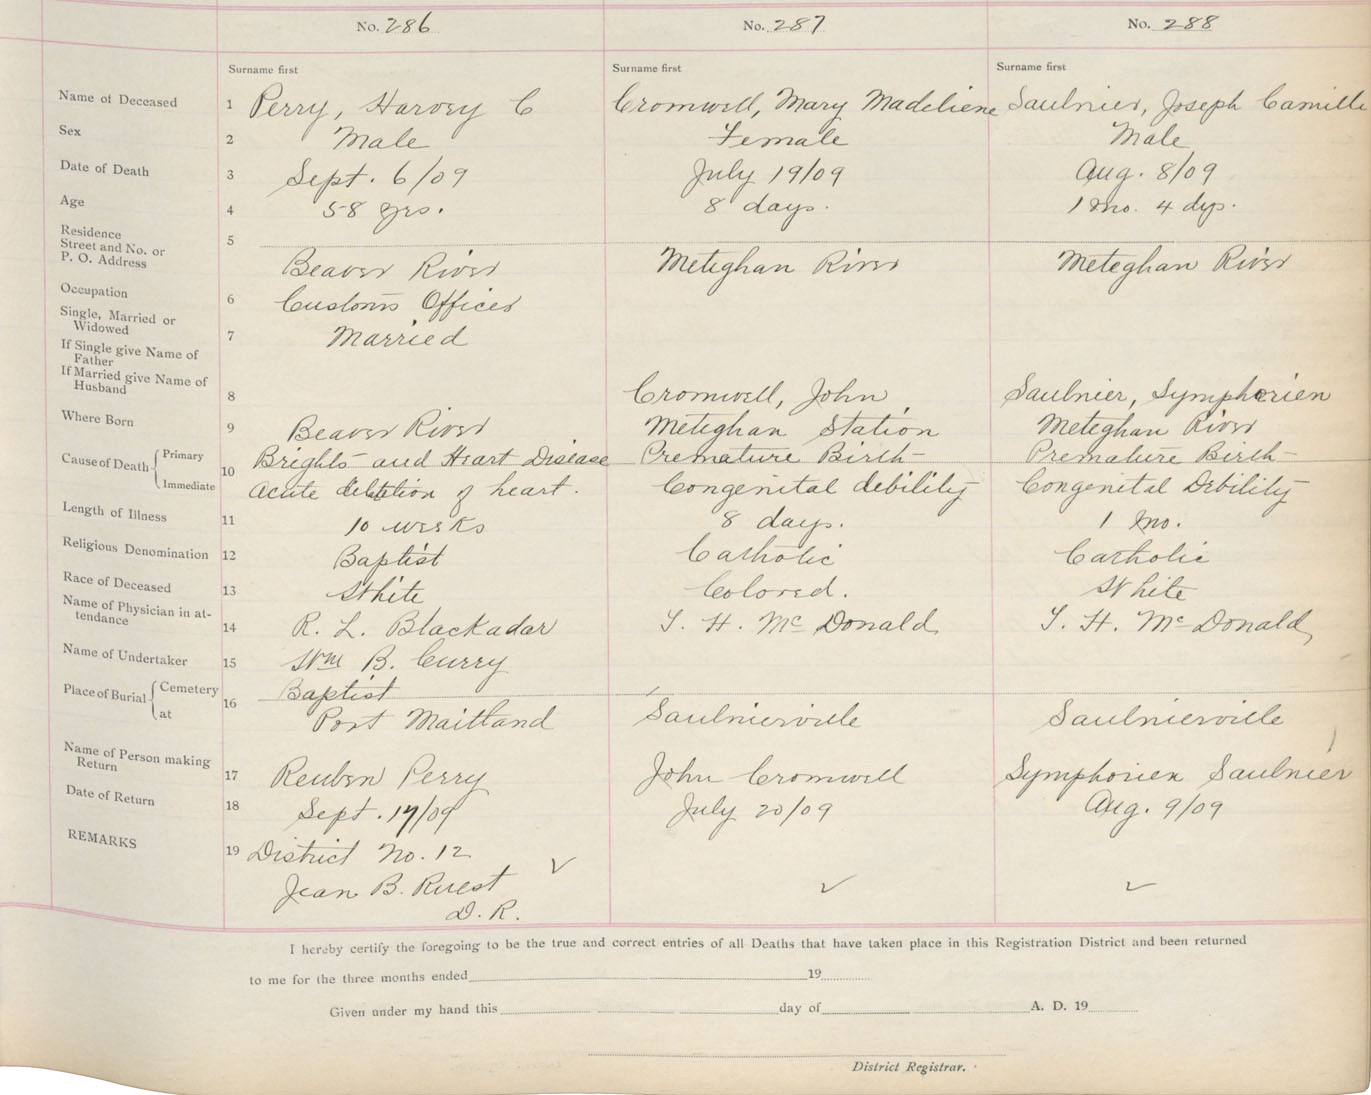 No. 286 No. 287 No. 288
Surname first Surname first Surname first
Name of Deceased 1 Perry, Harvey C Cromwell, Mary Madeliene Saulnier, Joseph Camille
Sex 2 Male Female Male
Date of Death 3 Sept. 6/09 July 19/09 Aug. 8/09
Age 4 58 yrs. 8 days. 1 mo. 4 dys.
Residence 5
Street and No. or
P. O. Address Beaver River Meteghan River Meteghan River
Occupation 6 Customs Officer
Single, Married or
Widowed 7 Married
If Single give Name of
Father
If Married give Name of
Husband 8 Cromwell, John Saulnier, Symphorien
Where Born 9 Beaver River Meteghan Station Meteghan River
Cause of Death Primary 10 Brights and Heart Disease Premature Birth Premature Birth
Immediate Acute diletation of heart. Congenital debility Congenital Debility
Length of Illness 11 10 weeks 8 days. 1 mo.
Religious Denomination 12 Baptist Catholic Catholic
Race of Deceased 13 White Colored. White
Name of Physician in at-
tendance 14 R. L. Blackadar T. H. McDonald T. H. McDonald
Name of Undertaker 15 Wm B. Curry
Place of Burial Cemetery 16 Baptist
at Port Maitland Saulnierville Saulnierville
Name of Person making
Return 17 Reuben Perry John Cromwell Symphorien Saulnier
Date of Return 18 Sept. /09 July 20/09 Aug. 9/09
REMARKS 19 District No. 12
Jean B. Ruest ✓ ✓ ✓
D. R.
I hereby certify the foregoing to be the true and correct entries of all Deaths that have taken place in this Registration District and been returned
to me for the three months ended 19
Given under my hand this day of A. D. 19
District Registrar.